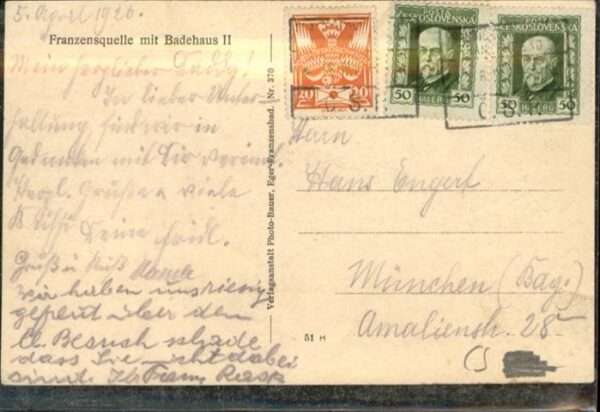 5. April 1926.
Franzensquelle mit Badehaus II
Mein herzlieber Teddy!
In lieber Unter-
haltung, sind wir in
Gedanken mit Dir vereint.
Herzl. Grüße u viele
Küsse
Deine Fridl.
Gruß u Kuß
wir haben uns riesig
gefreut über den
lb. Besuch schade
dass Sie nicht dabei
sind. Ihr Franz
Verlagsanstalt Photo-Bauer, Eger-Franzensbad. Nr. 370
51 H
POŠTA
ČESKOSLOVENSKA
20 20
50 50
50 50
Č. S.
Č. S. R.
Herrn
Hans Engert
München (Bay.)
Amalienstr. 28